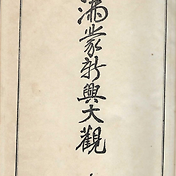 滿蒙新興大觀